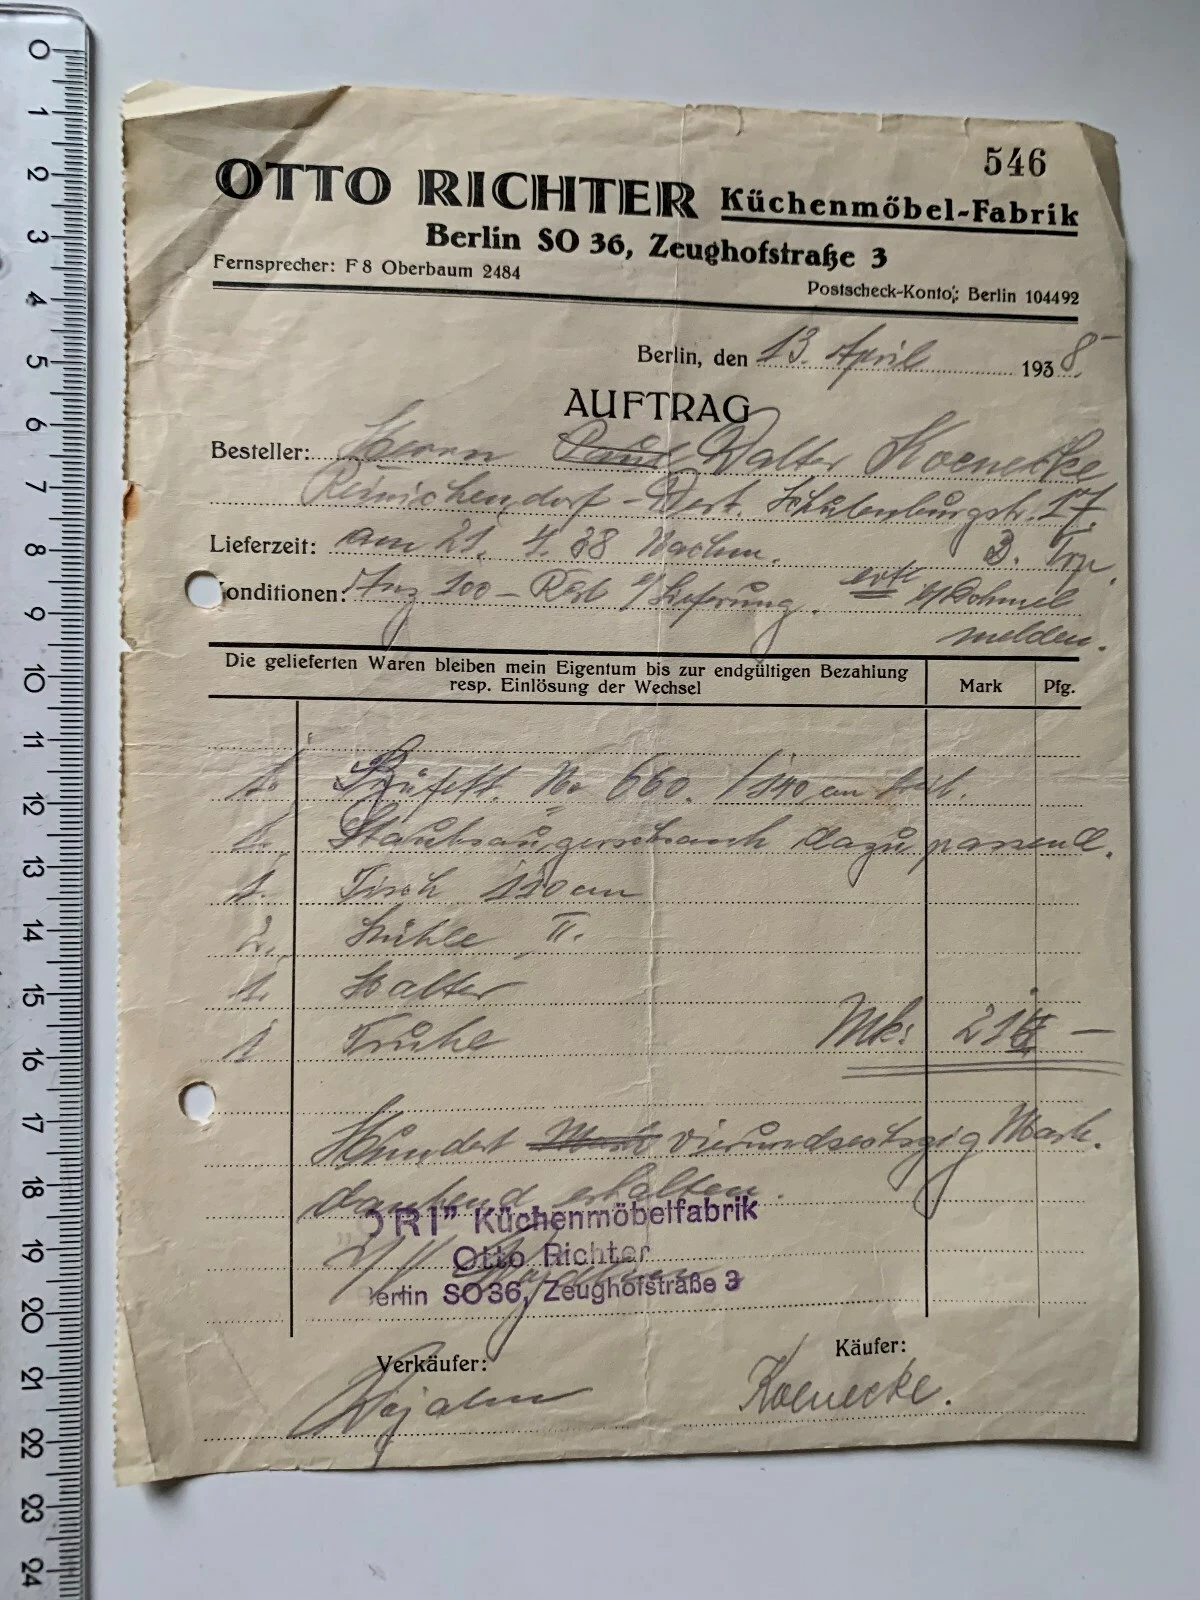 546
OTTO RICHTER Küchenmöbel-Fabrik
Berlin SO 36, Zeughofstraße 3
Fernsprecher: F 8 Oberbaum 2484
Postscheck-Konto: Berlin 104492
Berlin, den 13. April 1938
AUFTRAG
Besteller: Herrn Walter Koenecke
Reinickendorf-West. Schulenburgstr. 17.
Lieferzeit: am 21. 4. 38 Nachm. 3. Trp.
Konditionen: Anz 100 - Rest b/Lieferung.
melden.
Die gelieferten Waren bleiben mein Eigentum bis zur endgültigen Bezahlung
resp. Einlösung der Wechsel
Mark Pfg.
1. Büfett. No 660. /140 cm
1. Staubsaugerschrank dazu passend.
1. Tisch 110 cm
2. Stühle II.
1. Halter
1 Truhe Mk:
Hundert vierundsechzig Mark.
dankend erhalten.
„ORI" Küchenmöbelfabrik
Otto Richter
Berlin SO36, Zeughofstraße 3
Verkäufer:
Käufer:
Koenecke.
0
1
2
3
4
5
6
7
8
9
10
11
12
13
14
15
16
17
18
19
20
21
22
23
24